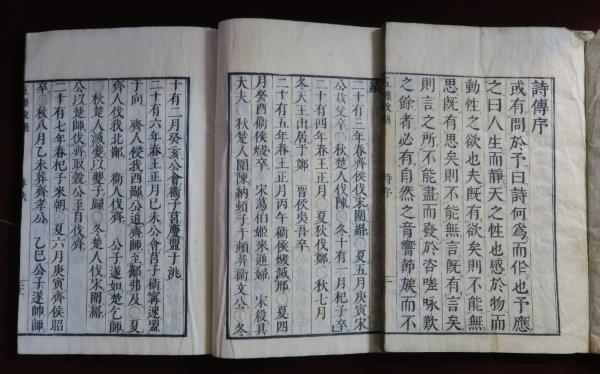 詩傳序
或有問於予曰詩何爲而作也予應
之曰人生而靜天之性也感於物而
動性之欲也夫既有欲矣則不能無
思既有思矣則不能無言既有言矣
則言之所不能盡而發於咨嗟咏歎
之餘者必有自然之音響節族而不
五經 詩序
二十有三年春齊侯伐宋圍緡○夏五月庚寅宋
公茲父卒○秋楚人伐陳○冬十有一月杞子卒
二十有四年春王正月○夏狄伐鄭○秋七月
冬天王出居于鄭 晉侯夷吾卒
二十有五年春王正月丙午衛侯燬滅邢○夏四
月癸酉衛侯燬卒 宋蕩伯姬來逆婦 宋殺其
大夫 秋楚人圍陳納頓子于頓葬衛文公○冬
十有二月癸亥公會衛子莒慶盟于洮
二十有六年春王正月己未公會莒子衛甯速盟
于向 齊人侵我西鄙公追齊師至酅弗及○夏
齊人伐我北鄙 衛人伐齊 公子遂如楚乞師
○秋楚人滅夔以夔子歸○冬楚人伐宋圍緡
公以楚師伐齊取穀公至自伐齊
二十有七年春杞子來朝○夏六月庚寅齊侯昭
卒○秋八月乙未葬齊孝公 乙巳公子遂帥師
五經 春秋